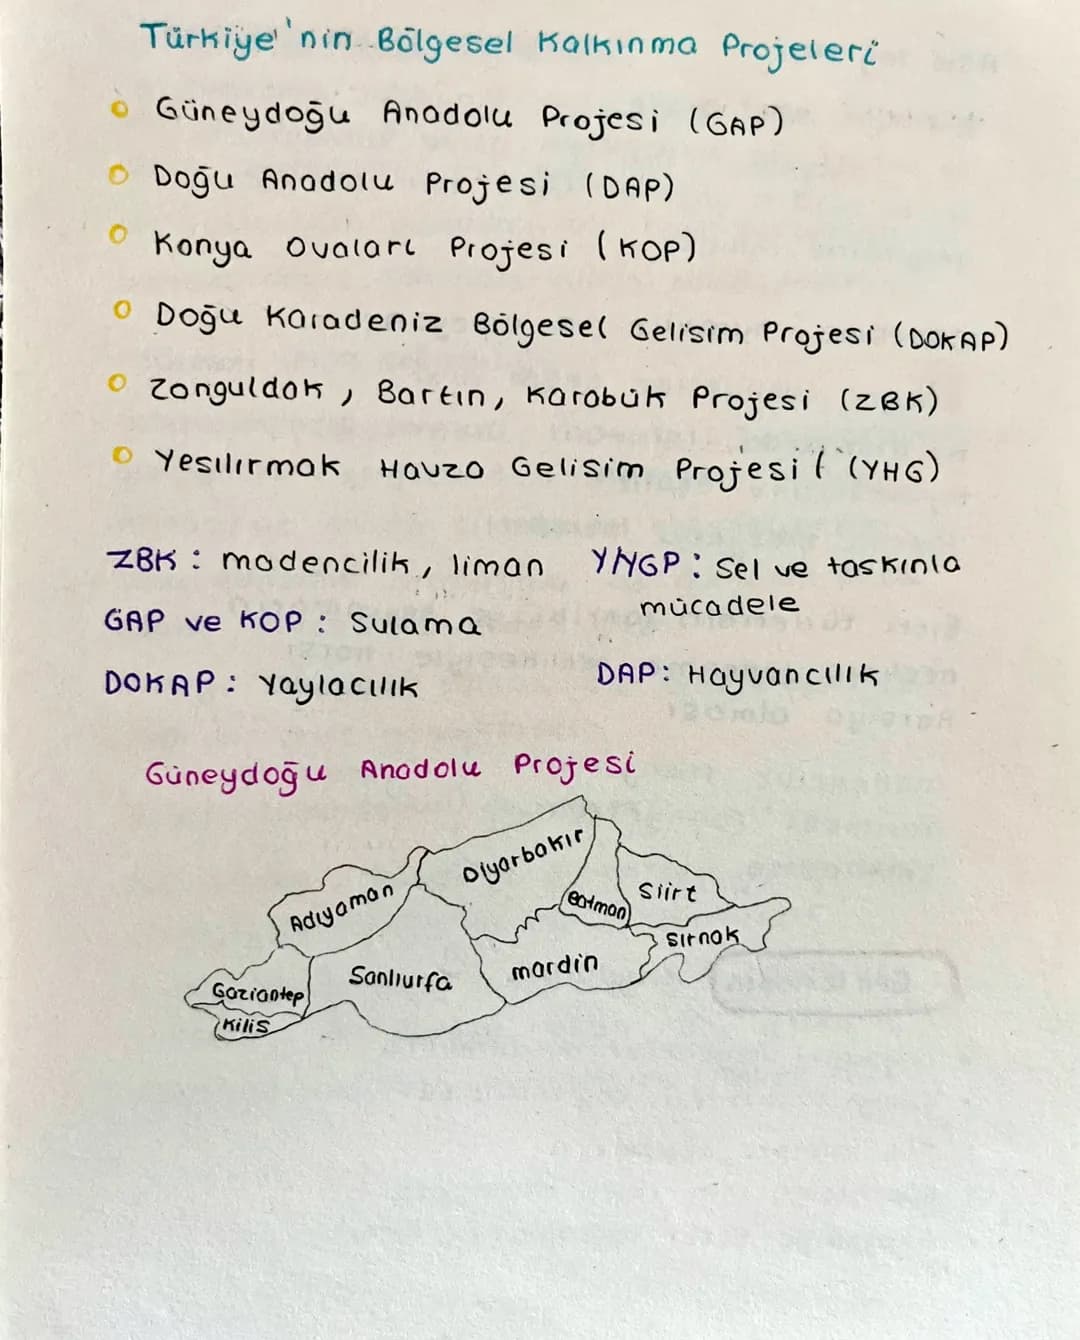 Türkiye'nin Bölgesel Kalkınma Projeleri
Güneydoğu Anadolu Projesi (GAP)
Doğu Anadolu Projesi (DAP)
Konya Ovaları Projesi (KOP)
Doğu Karadeniz Bölgesel Gelisim Projesi (DOKAP)
Zonguldak, Bartın, Karabük Projesi (ZBK)
Yesılırmak Havza Gelisim Projesi (YHG)
ZBK: madencilik, liman
YHGP: Sel ve taskınla
mücadele
GAP ve KOP: Sulama
DOKAP: Yaylacılık
DAP: Hayvancılık
Güneydoğu Anadolu Projesi
Adıyaman
Diyarbakır
Batman
Siirt
Sırnak
Mardin
Sanlıurfa
Gaziantep
Kilis